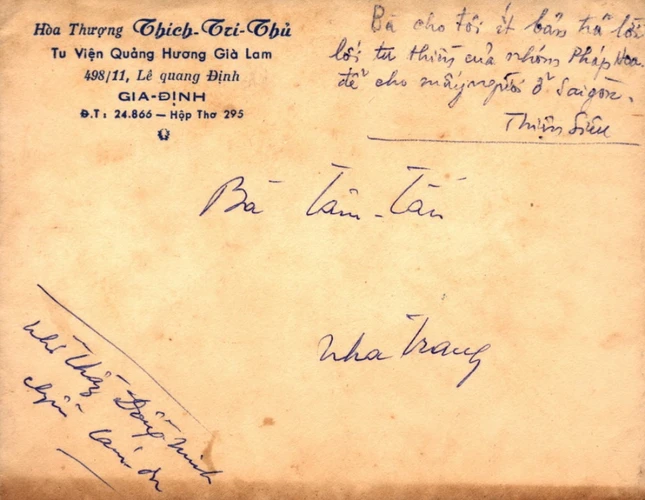 Hòa Thượng Thích-Trí-Thủ
Tu Viện Quảng Hương Già Lam
498/11, Lê quang Định
GIA-ĐỊNH
Đ.T: 24.866 — Hộp Thơ 295
Bà cho tôi ít bản trả lời
lối tu thiền của nhóm Pháp Hoa
để cho mấy người ở Saigon.
Thiện Siêu
Bà Tâm-Tấn
Nha Trang
nhờ Thầy Đổng Minh
chuyển cám ơn